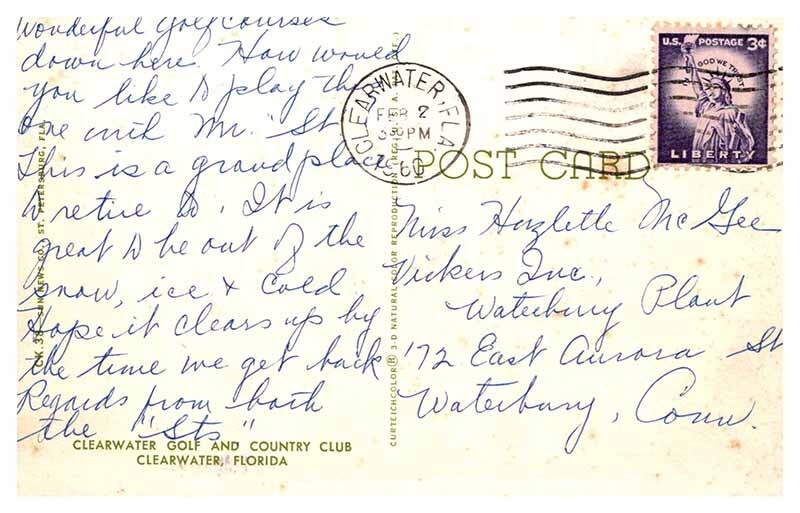 Wonderful golf courses
down here. How would
you like to play this
one with Mr. "St
This is a grand place
to retire to. It is
great to be out of the
snow, ice & cold
Hope it clears up by
the time we get back
Regards from both
the "Sts"
CLEARWATER GOLF AND COUNTRY CLUB
CLEARWATER, FLORIDA
SUN NEWS CO., ST. PETERSBURG, FLA.
CURTEICHCOLOR® 3-D NATURAL COLOR REPRODUCTION
CLEARWATER, FLA
FEB 2
PM
60
U.S. POSTAGE 3¢
IN GOD WE TRUST
LIBERTY
POST CARD
Miss Hazlette McGee
Vickers Inc.,
Waterbury Plant
172 East Aurora St
Waterbury, Conn.